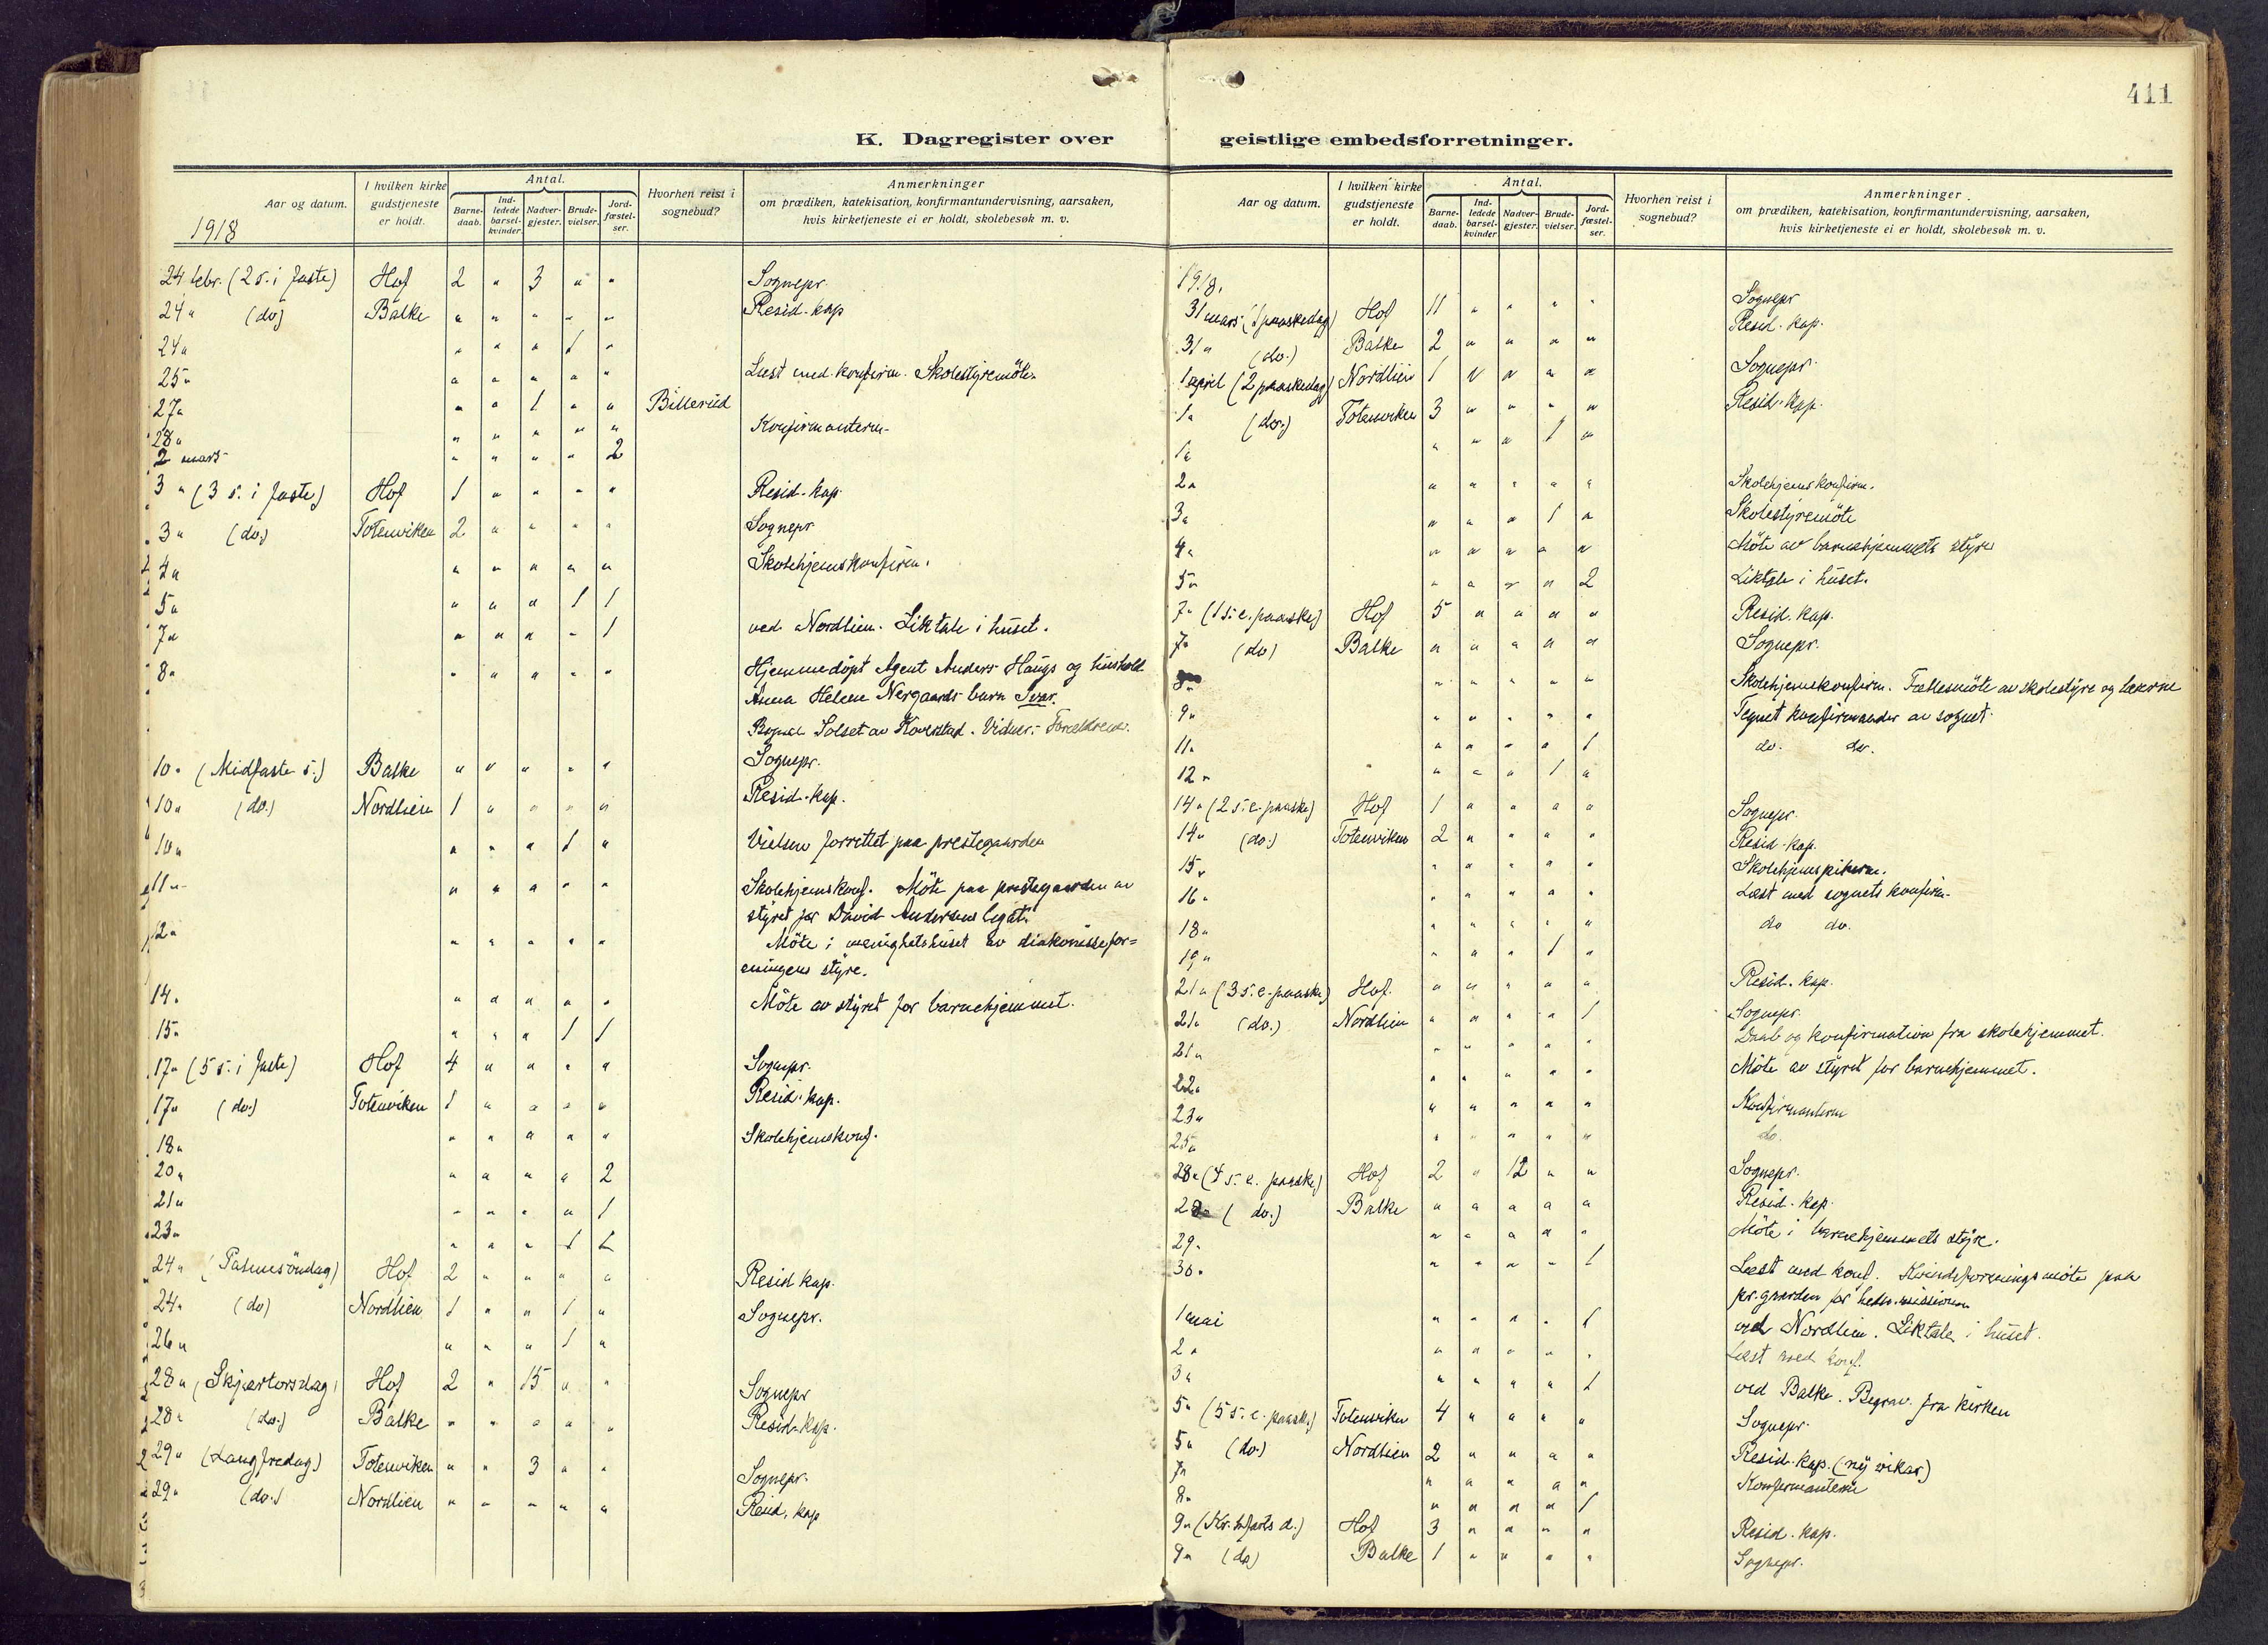 411
K. Dagregister over geistlige embedsforretninger.
Aar og datum. I hvilken kirke gudstjeneste er holdt. Antal. Barne-daab. Ind-ledede barsel-kvinder. Nadver-gjester. Brude-vielser. Jord-fæstel-ser. Hvorhen reist i sognebud? Anmerkninger om prædiken, katekisation, konfirmantundervisning, aarsaken, hvis kirketjeneste ei er holdt, skolebesøk m. v.
1918
24 febr. (2 s. i faste) Hof 2 " 3 " " Sognepr.
24 " (do) Balke " " " " " Resid. kap
24 " " " " 1 "
25 " " " " " " Læst med konfirm. Skolestyremöte.
27 " " " 1 " " Billerud
28 " " " " " " Konfirmanterne
2 mars " " " " 2
3 " (3 s. i faste) Hof 1 " " " " Resid. kap.
3 " (do.) Totenviken 2 " " " " Sognepr
4 " " " " " " Skolehjemskonfirm.
5 " " " " 1 1
7 " " " " " 1 ved Nordlien. Liktale i huset.
8 " " " " " " Hjemmedöpt Agent Anders Haugs og hushold
Anna Helene Nergaards barn Ivar.
Solset av Koverstad. Vidner: Forældrene.
10 " (Midfaste s.) Balke " " " " " Sognepr.
10 " (do.) Nordlien 1 " " " " Resid. kap.
10 " " " " 1 " Vielsen forrettet paa prestegaarden
11 " " " " " " Skolehjemskonf. Möte paa prestegaarden av
styret for David Andersens legat.
12 " " " " " " Möte i menighetshuset av diakonissefor=
eningens styre.
14 " " " " " " Möte av styret for barnehjemmet.
15 " " " " 1 1
17 " (5 s. i faste) Hof 4 " " " " Sognepr.
17 " (do.) Totenviken 1 " " " " Resid. kap.
18 " " " " " " Skolehjemskonf.
20 " " " " " 2
21 " " " " " 1
23 " " " " 1 1
24 " (Palmesöndag) Hof 2 " " " " Resid kap.
24 " (do) Nordlien 1 " " 1 " Sognepr.
26 " " " " 1 "
28 " (Skjærtorsdag) Hof 2 " 15 " " Sognepr
28 " (do.) Balke " " " " " Resid. kap.
29 " (Langfredag) Totenviken " " 3 " " Sognepr.
29 " (do.) Nordlien " " " " " Resid. kap
Aar og datum. I hvilken kirke gudstjeneste er holdt. Antal. Barne-daab. Ind-ledede barsel-kvinder Nadver-gjester. Brude-vielser. Jord-fæstel-ser. Hvorhen reist i sognebud? Anmerkninger om prædiken, katekisation, konfirmantundervisning, aarsaken, hvis kirketjeneste ei er holdt, skolebesøk m. v.
1918.
31 mars (1 paaskedag) Hof 11 " " " " Sognepr
31 " (do.) Balke 2 " " " " Resid. kap.
1 april (2 paaskedag) Nordlien 1 " " " " Sognepr.
1 " (do.) Totenviken 3 " " " " Resid. kap.
1 " " " " 1 "
2 " " " " " " Skolehjemskonfirm.
3 " " " " 1 " Skolestyremöte
4 " " " " " " Möte av barnehjemmets styre
5 " " " " " 2 Liktale i huset.
7 " (1 s. e. paaske) Hof 5 " " " " Resid. kap.
7 " (do) Balke " " " " " Sognepr.
8 " " " " " " Skolehjemskonfirm. Fællesmöte av skolestyre og lærerne
9 " " " " " " Tegnet konfirmander av sognet.
11 " " " " " 1 do. do.
12 " " " " 1 "
14 " (2 s. e. paaske) Hof 1 " " " " Sognepr.
14 " (do.) Totenviken 2 " " " " Resid. kap.
15 " " " " " " Skolehjemspikerne.
16 " " " " " " Læst med sognets konfirm.
18 " " " " " " do do.
19 " " " " 1 "
21 " (3 s. e. paaske) Hof. " " " " " Resid. kap.
21 " (do.) Nordlien " " " " 1 Sognepr.
21 " " " " " " Daab og konfirmation fra skolehjemmet.
22 " " " " " " Möte av styret for barnehjemmet.
23 " " " " " " Konfirmanterne
25 " " " " " " do.
28 " (4 s. e. paaske) Hof 2 " 12 " " Sognepr.
28 " (do.) Balke " " " " " Resid. kap.
29 " " " " " " Möte i barnehjemmets styre.
30 " " " " " 1 Læst med konf. Kvindeforeningsmöte paa
pr.gaarden for hedn.missionen
1 mai " " " " 1 ved Nordlien. Liktale i huset.
2 " " " " " " Læst med konf.
3 " " " " " 1 ved Balke. Begrav. fra kirken
5 " (5 s. e. paaske) Totenviken 4 " " " " Sognepr.
5 " (do.) Nordlien 2 " " " " Resid. kap. (ny vikar)
7 " " " " " " Konfirmanterne
8 " " " " " 1
9 " (Kr. h.farts d.) Hof 3 " " " " Resid. kap.
9 " (do) Balke 1 " " " " Sognepr.